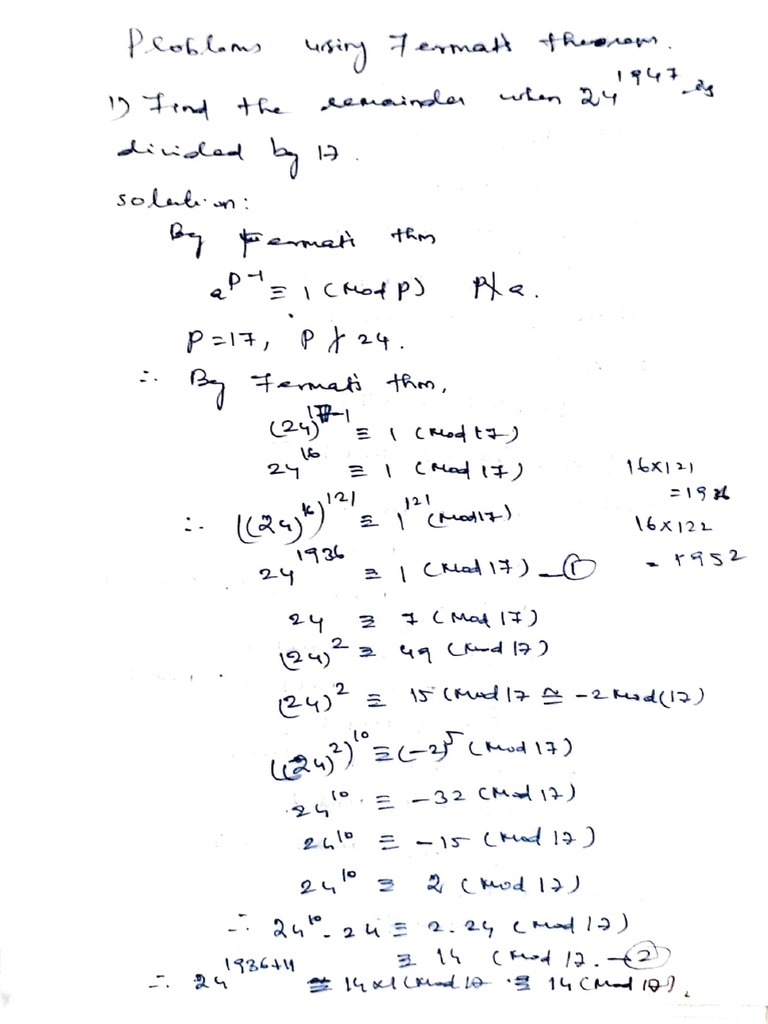 Problems using Fermat's theorem.
1) Find the remainder when 24^1947 is
divided by 17.
solution:
By Fermat's thm
a^(p-1) ≡ 1 (Mod p) p∤a.
p=17, p ∤ 24.
∴ By Fermat's thm,
(24)^(17-1) ≡ 1 (Mod 17)
24^16 ≡ 1 (Mod 17) 16×121
=1936
∴ ((24)^16)^121 ≡ 1^121 (Mod 17) 16×122
24^1936 ≡ 1 (Mod 17) – ① = 1952
24 ≡ 7 (Mod 17)
(24)^2 ≡ 49 (Mod 17)
(24)^2 ≡ 15 (Mod 17 ≅ -2 Mod(17)
((24)^2)^10 ≡ (-2)^5 (Mod 17)
24^10 ≡ -32 (Mod 17)
24^10 ≡ -15 (Mod 17)
24^10 ≡ 2 (Mod 17)
∴ 24^10 . 24 ≡ 2.24 (Mod 17)
≡ 14 (Mod 17. – ②
∴ 24^(1936+11) ≡ 14×1 (Mod 17 ≡ 14 (Mod 17).